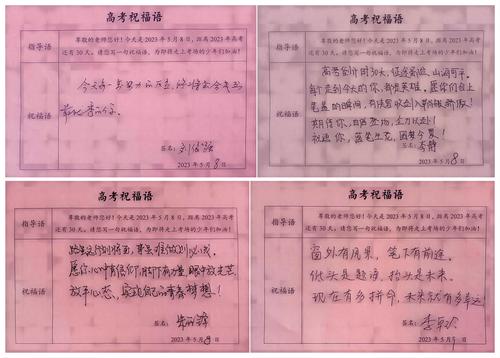 高考祝福语
指导语
尊敬的老师您好！今天是 2023 年 5 月 8 日，距离 2023 年高考
还有 30 天。请您写一句祝福语，为即将走上考场的少年们加油！
祝福语
签名：
2023 年 5 月 8 日
高考祝福语
指导语
尊敬的老师您好！今天是 2023 年 5 月 8 日，距离 2023 年高考
还有 30 天。请您写一句祝福语，为即将走上考场的少年们加油！
祝福语
高考倒计时30天，征途漫漫，山海可平。
每个走到今天的你，都是英雄。愿你们合上
笔盖的瞬间，有侠客收剑入鞘的骄傲！
期待你，自信登场，全力以赴！
祝愿你，落笔生花，圆梦今夏！
签名：李静
2023 年 5 月 8 日
高考祝福语
指导语
尊敬的老师您好！今天是 2023 年 5 月 8 日，距离 2023 年高考
还有 30 天。请您写一句祝福语，为即将走上考场的少年们加油！
祝福语
愿你心中有信仰，脚下有力量，眼中放光芒
放平心态，实现自己的青春梦想！
签名：
2023 年 5 月 8 日
高考祝福语
指导语
尊敬的老师您好！今天是 2023 年 5 月 8 日，距离 2023 年高考
还有 30 天。请您写一句祝福语，为即将走上考场的少年们加油！
祝福语
窗外有风景，笔下有前途。
低头是题海，抬头是未来。
现在有多拼命，未来就有多幸运
签名：
2023 年 5 月 日